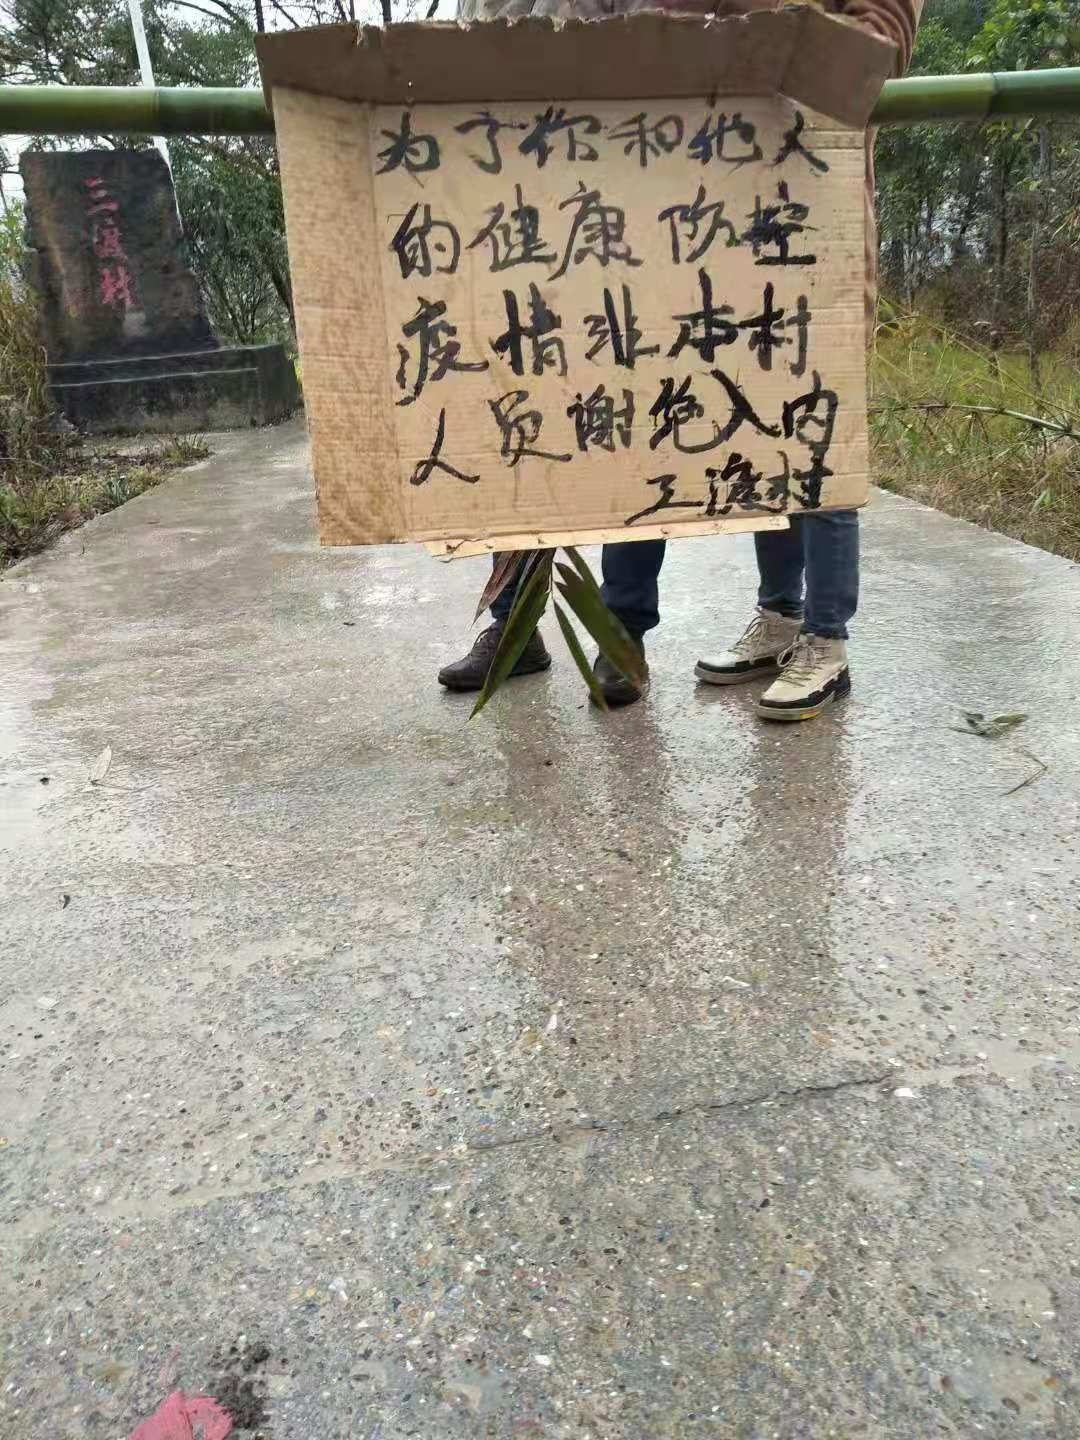 三渡村
为了你和他人
的健康防控
疫情非本村
人员谢绝入内
三渡村